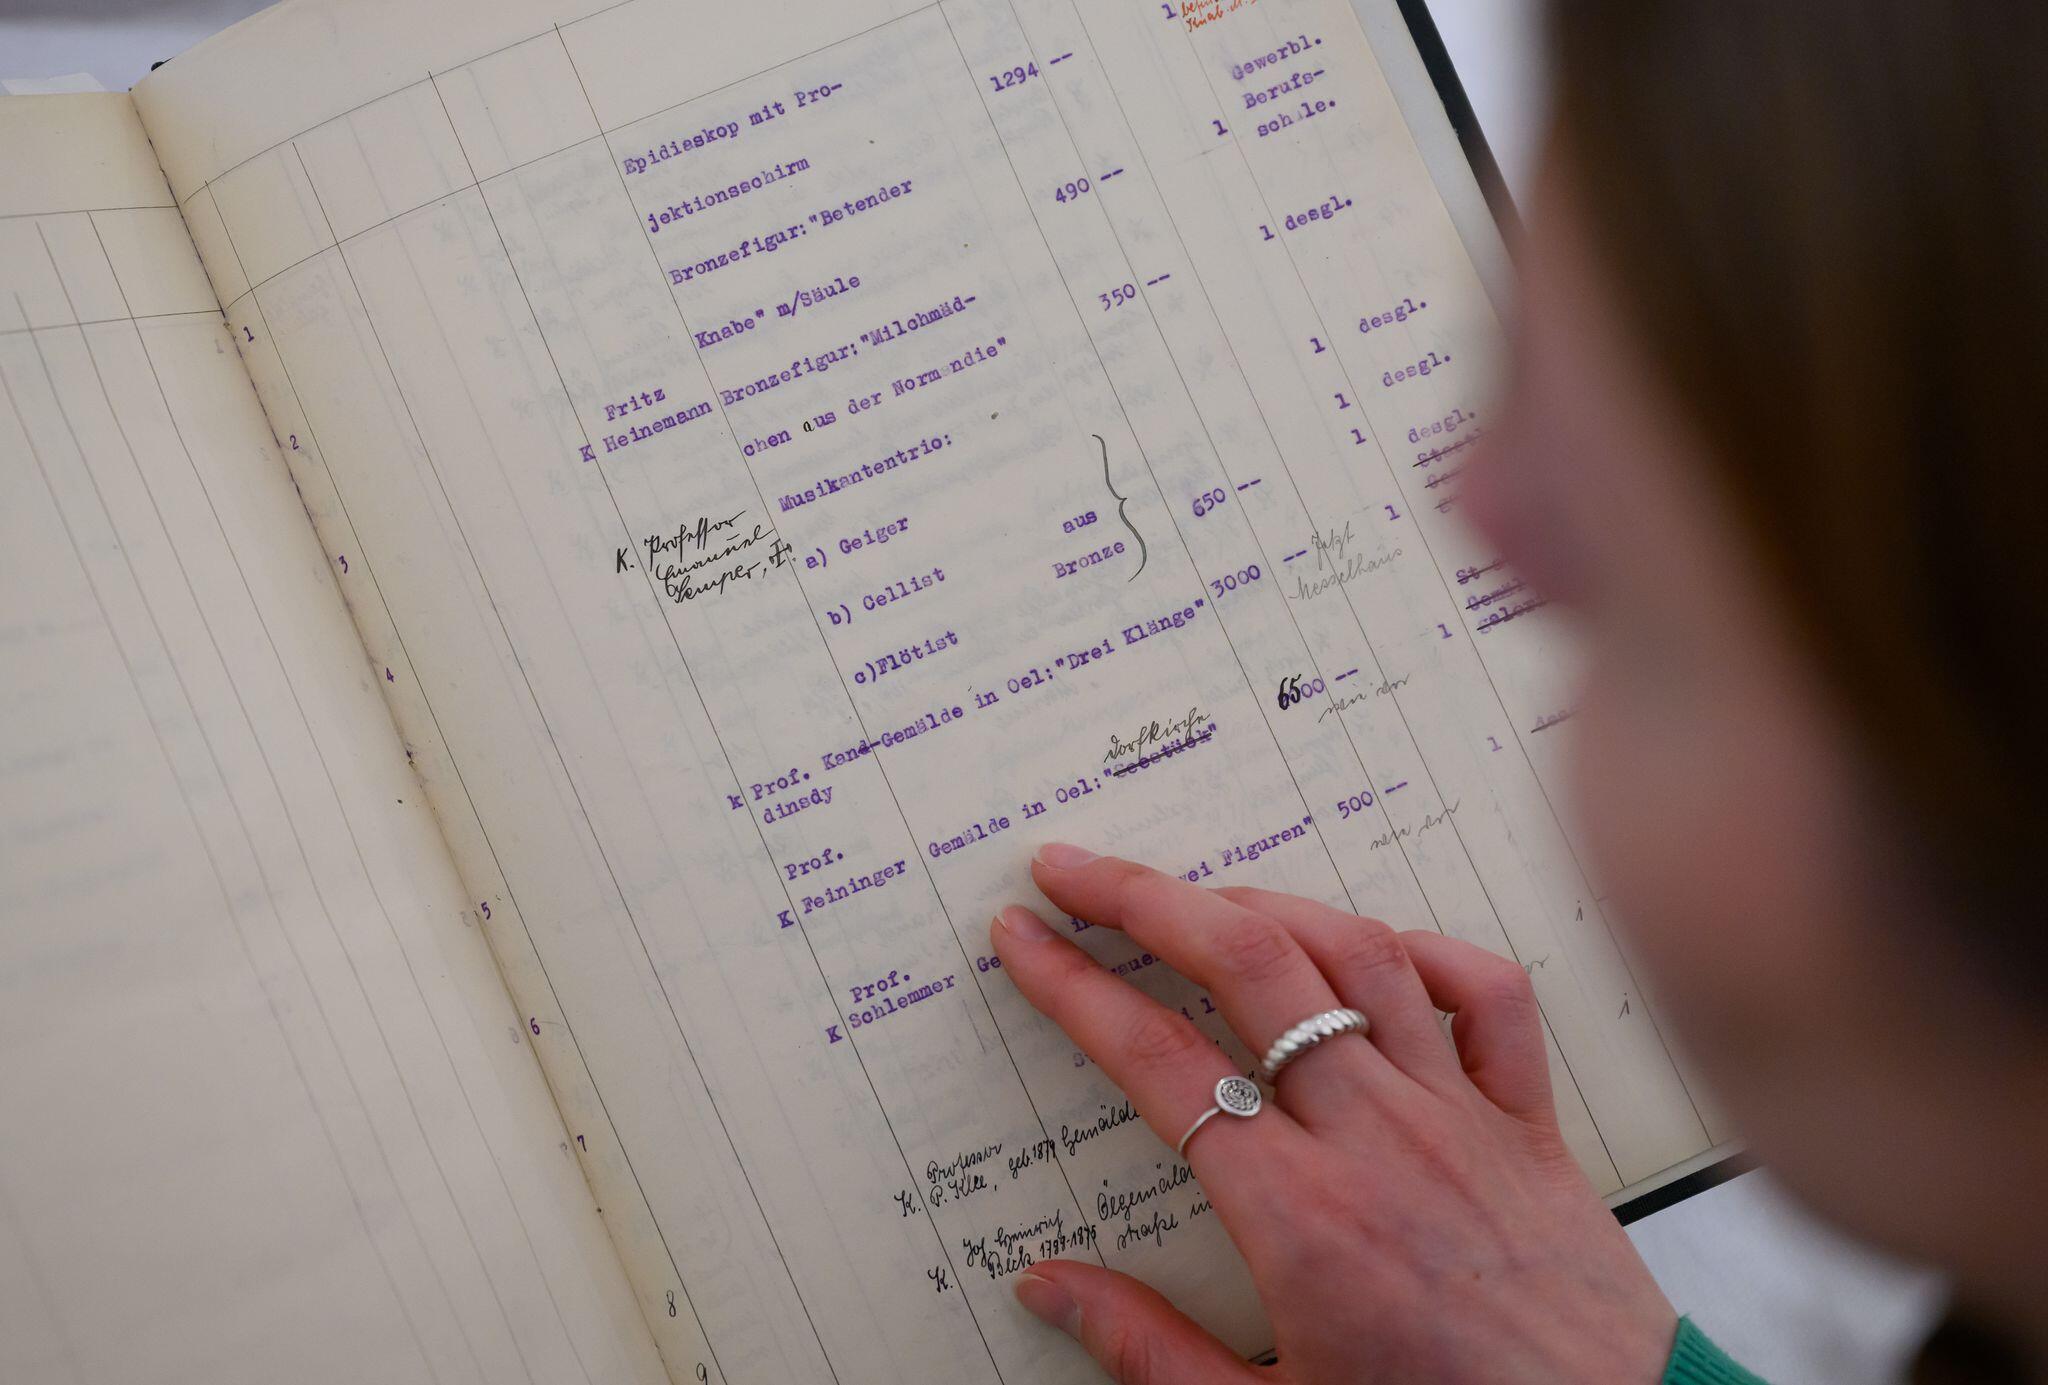 1
Gewerbl.
Berufs-
Epidiaskop mit Pro- 1294 -- 1 schule.
jektionsschirm
1 Bronzefigur: "Betender 490 -- 1 desgl.
Knabe" m/Säule
Fritz
2 K Heinemann Bronzefigur: "Milchmäd- 350 -- 1 desgl.
chen aus der Normandie"
1 desgl.
K. Professor
Emanuel
Semper,
3 Musikantentrio: 1 desgl.
a) Geiger
b) Cellist aus Bronze 650 -- 1
c)Flötist
Jetzt
Messelhaus
4 k Prof. Kand- Gemälde in Oel: "Drei Klänge" 3000 -- 1
dinsdy
Prof.
Dorfkirche
5 K Feininger Gemälde in Oel: "Seestück" 6500 -- 1
wie vor
Prof.
6 K Schlemmer Ge wei Figuren" 500 --
wie vor
7
K. Professor
P. Klee, geb. 1879 Gemälde
8
K. Joh. Heinrich
Beck 1788-1875 Ölgemälde
straße in
9